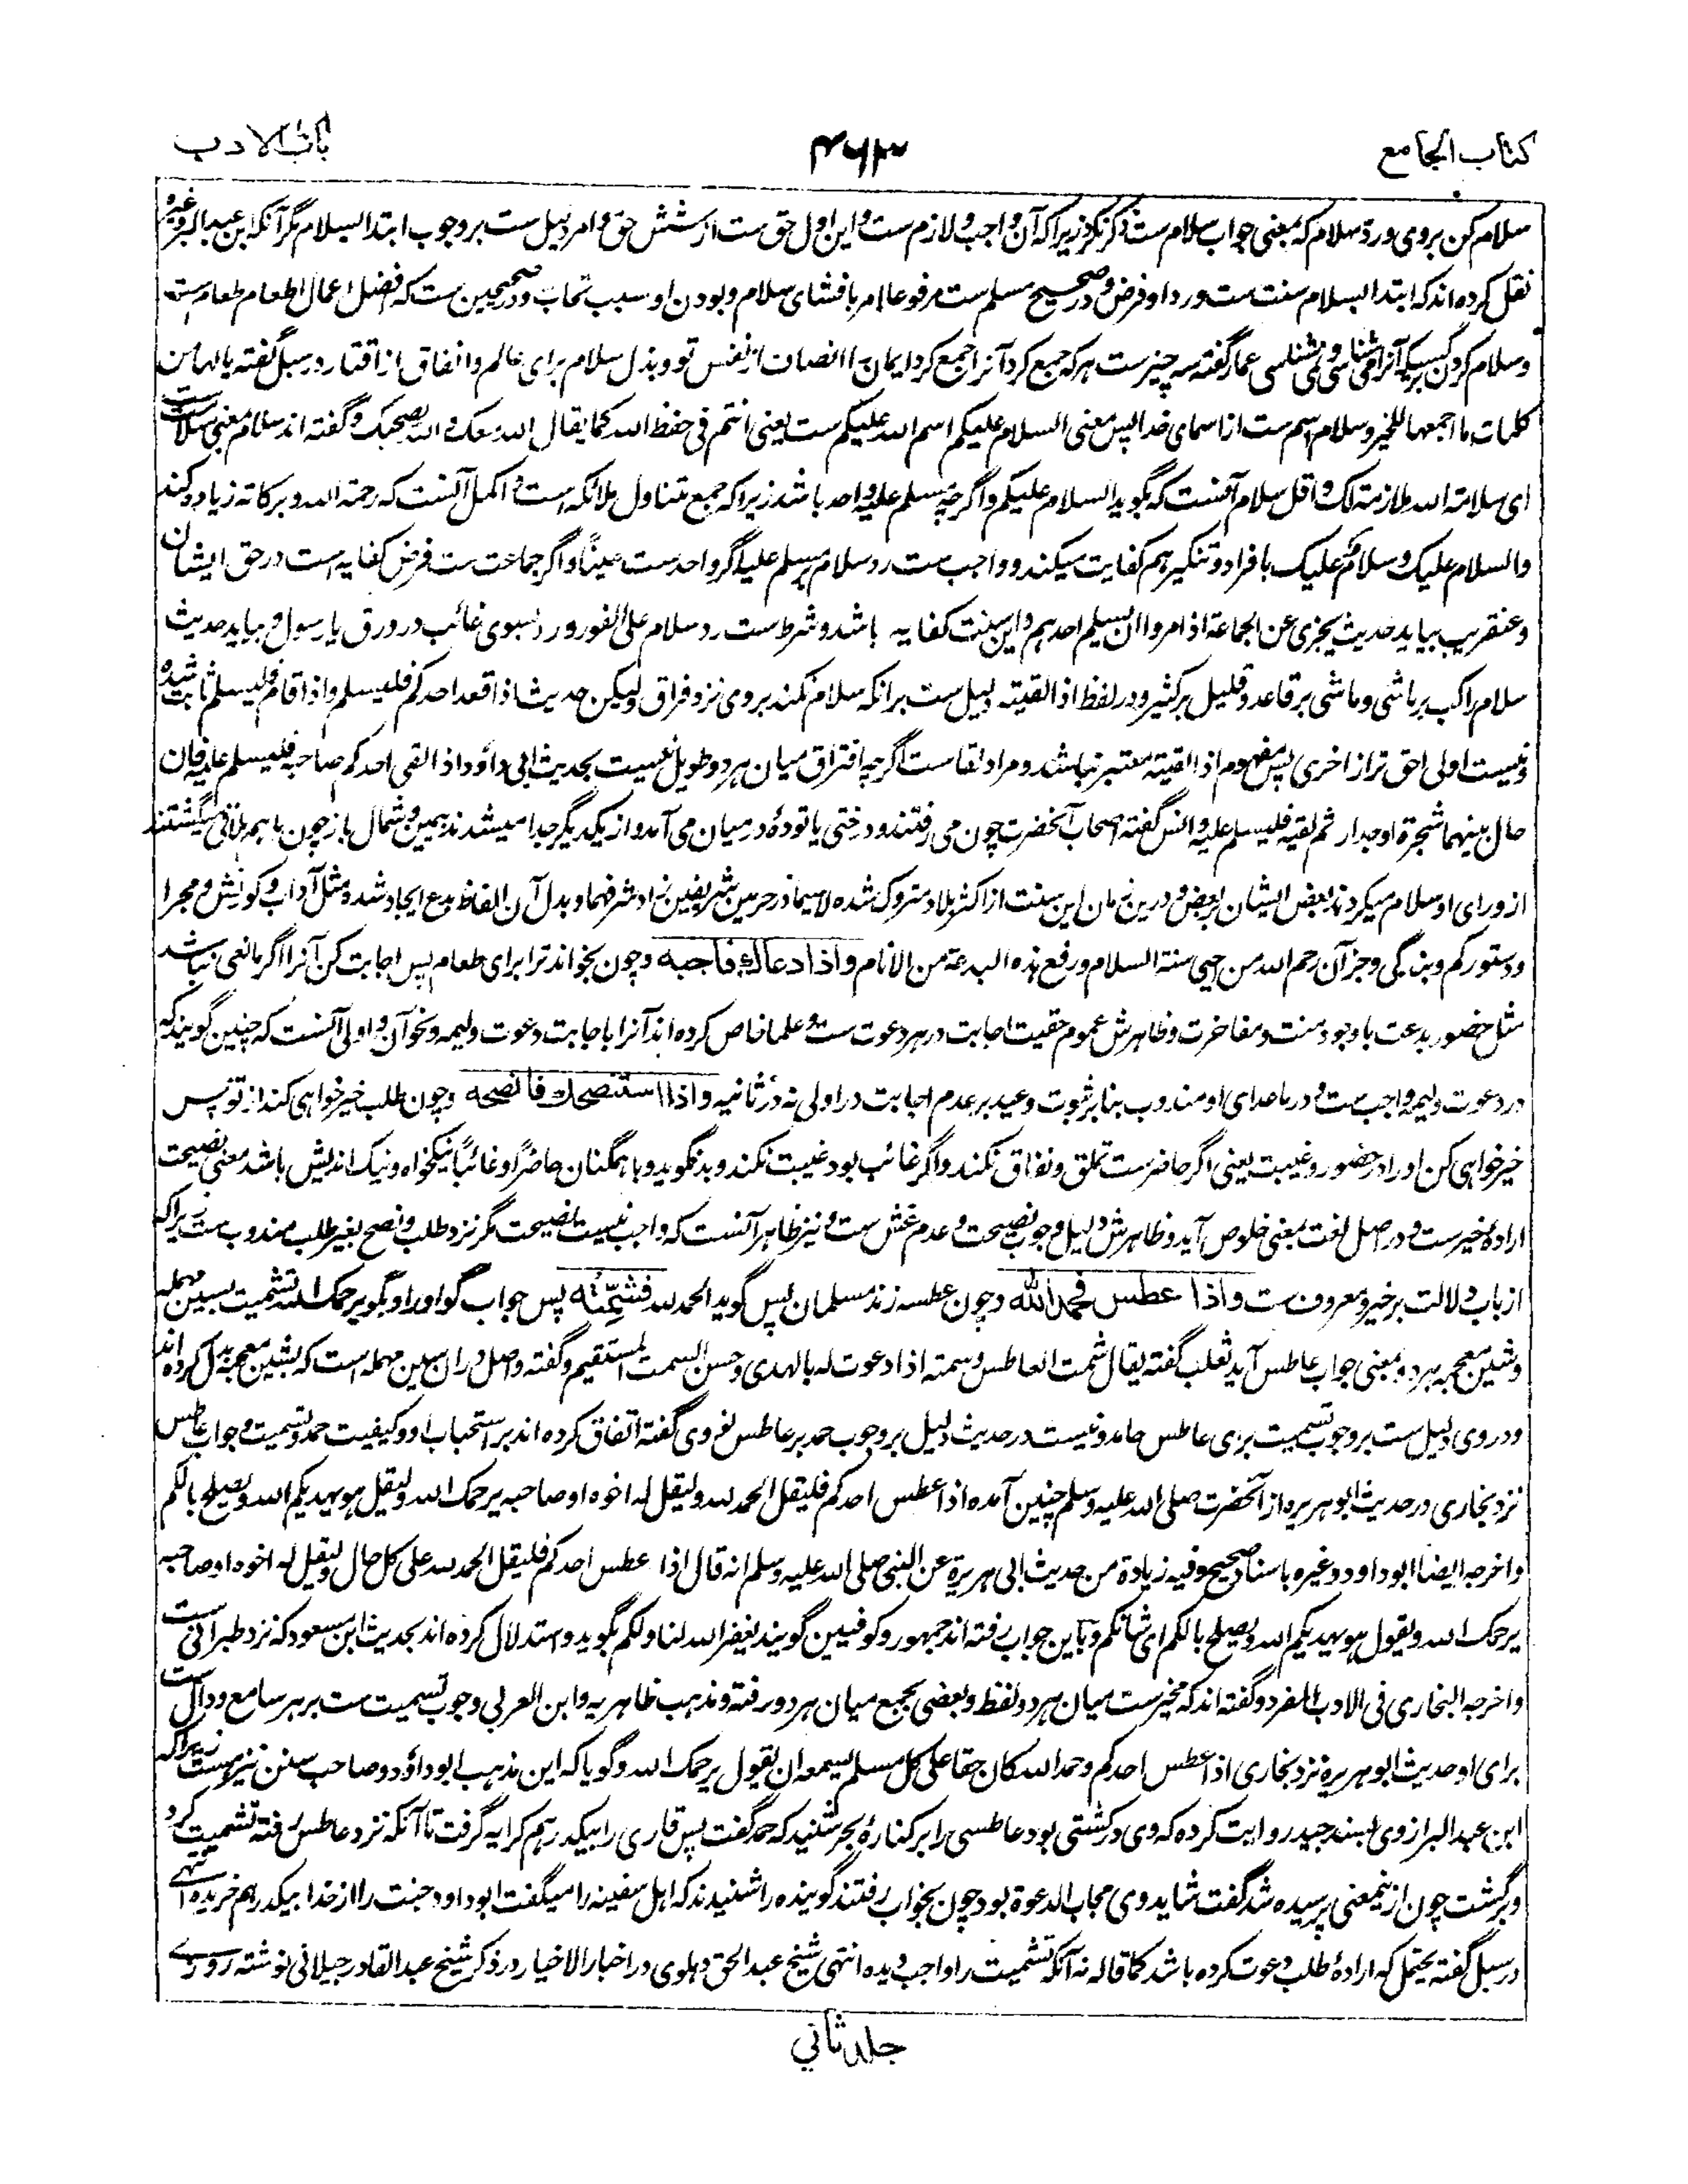 کتاب الجامع
۴۶۳
باب الادب
سلام کن بروی ورد سلام که بمعنی جواب سلام ست ذکر نکرد زیرا که آن واجب و لازم ست و این اول حق ست از شش حق و امر دلیل ست بر وجوب ابتدا السلام مگر آنکه ابن عبدالبر وغیره
نقل کرده اند که ابتدا السلام سنت ست ورد او فرض و در صحیح مسلم ست مرفوعا امر بافشای سلام و بودن او سبب تحاب و در صحیحین ست که افضل اعمال اطعام طعام ست
وسلام کردن بر کسیکه آنرا می شناسی و نمی شناسی عمار گفته سه چیز ست هر که جمع کرد آنرا جمع کرد ایمان را انصاف از نفس تو و بذل سلام برای عالم و انفاق از اقتار در سبل گفته یالها من
کلمات ما اجمعها للخیر و سلام اسم ست از اسمای خدا پس معنی السلام علیکم اسم الله علیکم ست یعنی انتم فی حفظ الله کما یقال الله معک و الله یصحبک و گفته اند سلام بمعنی سلامت ست
ای سلامة الله ملازمة لک و اقل سلام آنست که بگوید السلام علیکم و اگرچه مسلم علیه واحد باشد زیرا که جمع متناول ملائکه است و اکمل آنست که رحمة الله و برکاته زیاده کند
والسلام علیک و سلامٌ علیک بافراد و تنکیر هم کفایت میکند و واجب ست رد سلام بر مسلم علیه اگر واحد ست عیناً و اگر جماعت ست فرض کفایه است در حق ایشان
وعنقریب بیاید حدیث یجزی عن الجماعة اذا مروا ان یسلم احدهم و این سنت کفایه باشد و شرط ست رد سلام علی الفور ورد بسوی غائب در ورق یا رسول و بیاید حدیث
سلام راکب بر ماشی و ماشی بر قاعد و قلیل بر کثیر و در لفظ اذا لقیته دلیل ست برانکه سلام نکند بروی نزد فراق ولیکن حدیث اذا قعد احدکم فلیسلم و اذا قام فلیسلم ثابت شده
ونیست اولی احق تر از اخری پس مفهوم اذا لقیته معتبر نباشد و مراد لقاست اگرچه افتراق میان هر دو طویل نیست بحدیث ابی داؤد اذا لقی احدکم صاحبه فلیسلم علیه فان
حال بینهما شجرة او جدار ثم لقیه فلیسلم علیه و انس گفته اصحاب آنحضرت چون می رفتند و درختی یا تودهٔ درمیان می آمد و از یکدیگر جدا میشدند بیمین و شمال باز چون باهم ملاقی میگشتند
از ورای او سلام میکردند بعض ایشان بر بعض و درین زمان این سنت از اکثر بلاد متروک شده لاسیما در حرمین شریفین زاد شرفهما و بدل آن الفاظ بدع ایجاد شده مثل آداب و کورنش و مجرا
ودستورکم و بندگی و جز آن رحم الله من احیی سنة السلام و رفع هذه البدعة من الانام واذا دعاك فاجبه و چون بخواند ترا برای طعام پس اجابت کن آنرا اگر مانعی نباشد
مثل حضور بدعت یا وجود منت و مفاخرت و ظاهرش عموم حقیت اجابت در هر دعوت ست و علما خاص کرده اند آنرا باجابت دعوت ولیمه و نحو آن و اولی آنست که چنین گویند که
در دعوت ولیمه واجب ست و در ماعدای او مندوب بنابر ثبوت وعید بر عدم اجابت در اولی نه در ثانیه واذا استنصحك فانصحه و چون طلب خیرخواهی کند از تو پس
خیرخواهی کن او را در حضور و غیبت یعنی اگر حاضر ست تملق و نفاق نکند و اگر غائب بود غیبت نکند و بد نگوید و با همگنان حاضراً و غائباً نیکخواه و نیک اندیش باشد معنی نصیحت
ارادهٔ خیر ست و در اصل لغت بمعنی خلوص آید و ظاهرش دلیل وجوب نصیحت و عدم غش ست و نیز ظاهر آنست که واجب نیست نصیحت مگر نزد طلب و نصح بغیر طلب مندوب ست زیرا که
از باب دلالت بر خیر و معروف ست واذا عطس فحمد الله و چون عطسه زند مسلمان پس گوید الحمد لله فشمّته پس جواب گو او را و بگو یرحمک الله تشمیت بسین مهمله
وشین معجمه هر دو بمعنی جواب عاطس آید ثعلب گفته یقال شمت العاطس و سمته اذا دعوت له بالهدی و حسن السمت المستقیم و گفته و اصل دران سین مهمله است که بشین معجمه بدل کرده اند
ودروی دلیل ست بر وجوب تسمیت برای عاطس حامد و نیست در حدیث دلیل بر وجوب حمد بر عاطس نووی گفته اتفاق کرده اند بر استحباب او و کیفیت حمد و تشمیت و جواب عاطس
نزد بخاری در حدیث ابوهریره از آنحضرت صلی الله علیه وسلم چنین آمده اذا عطس احدکم فلیقل الحمد لله ولیقل له اخوه او صاحبه یرحمک الله ولیقل هو یهدیکم الله و یصلح بالکم
واخرجه ایضا ابوداود وغیره باسناد صحیح وفیه زیادة من حدیث ابی هریرة عن النبی صلی الله علیه وسلم انه قال اذا عطس احدکم فلیقل الحمد لله علی کل حال ولیقل له اخوه او صاحبه
یرحمک الله ویقول هو یهدیکم الله و یصلح بالکم ای شانکم و باین جواب رفته اند جمهور و کوفیین گویند یغفر الله لنا ولکم بگوید و استدلال کرده اند بحدیث ابن مسعود که نزد طبرانی ست
واخرجه البخاری فی الادب المفرد و گفته اند که مخیر ست میان هر دو لفظ و بعضی بجمع میان هر دو رفته و مذهب ظاهریه و ابن العربی وجوب تسمیت ست بر هر سامع و دال ست
برای او حدیث ابوهریرة نزد بخاری اذا عطس احدکم و حمد الله کان حقا علی کل مسلم یسمعه ان یقول یرحمک الله و گویا که این مذهب ابوداؤد و صاحب سنن نیز هست زیرا که
ابن عبدالبر از وی بسند جید روایت کرده که وی در کشتی بود عاطسی را بر کنارهٔ بحر شنید که حمد گفت پس قاری را بیک درهم کرایه گرفت تا آنکه نزد عاطس رفته تشمیت کرد
وبرگشت چون ازینمعنی پرسیده شد گفت شاید وی مجاب الدعوة بود چون بخواب رفتند گوینده را شنیدند که اهل سفینه را میگفت ابوداود جنت را از خدا بیک درهم خریده انتهی
در سبل گفته یحتمل که ارادهٔ طلب دعوت کرده باشد کما قاله نه آنکه تشمیت را واجب دیده انتهی شیخ عبدالحق دهلوی در اخبار الاخیار در ذکر شیخ عبدالقادر جیلانی نوشته روزے
جلد ثاني